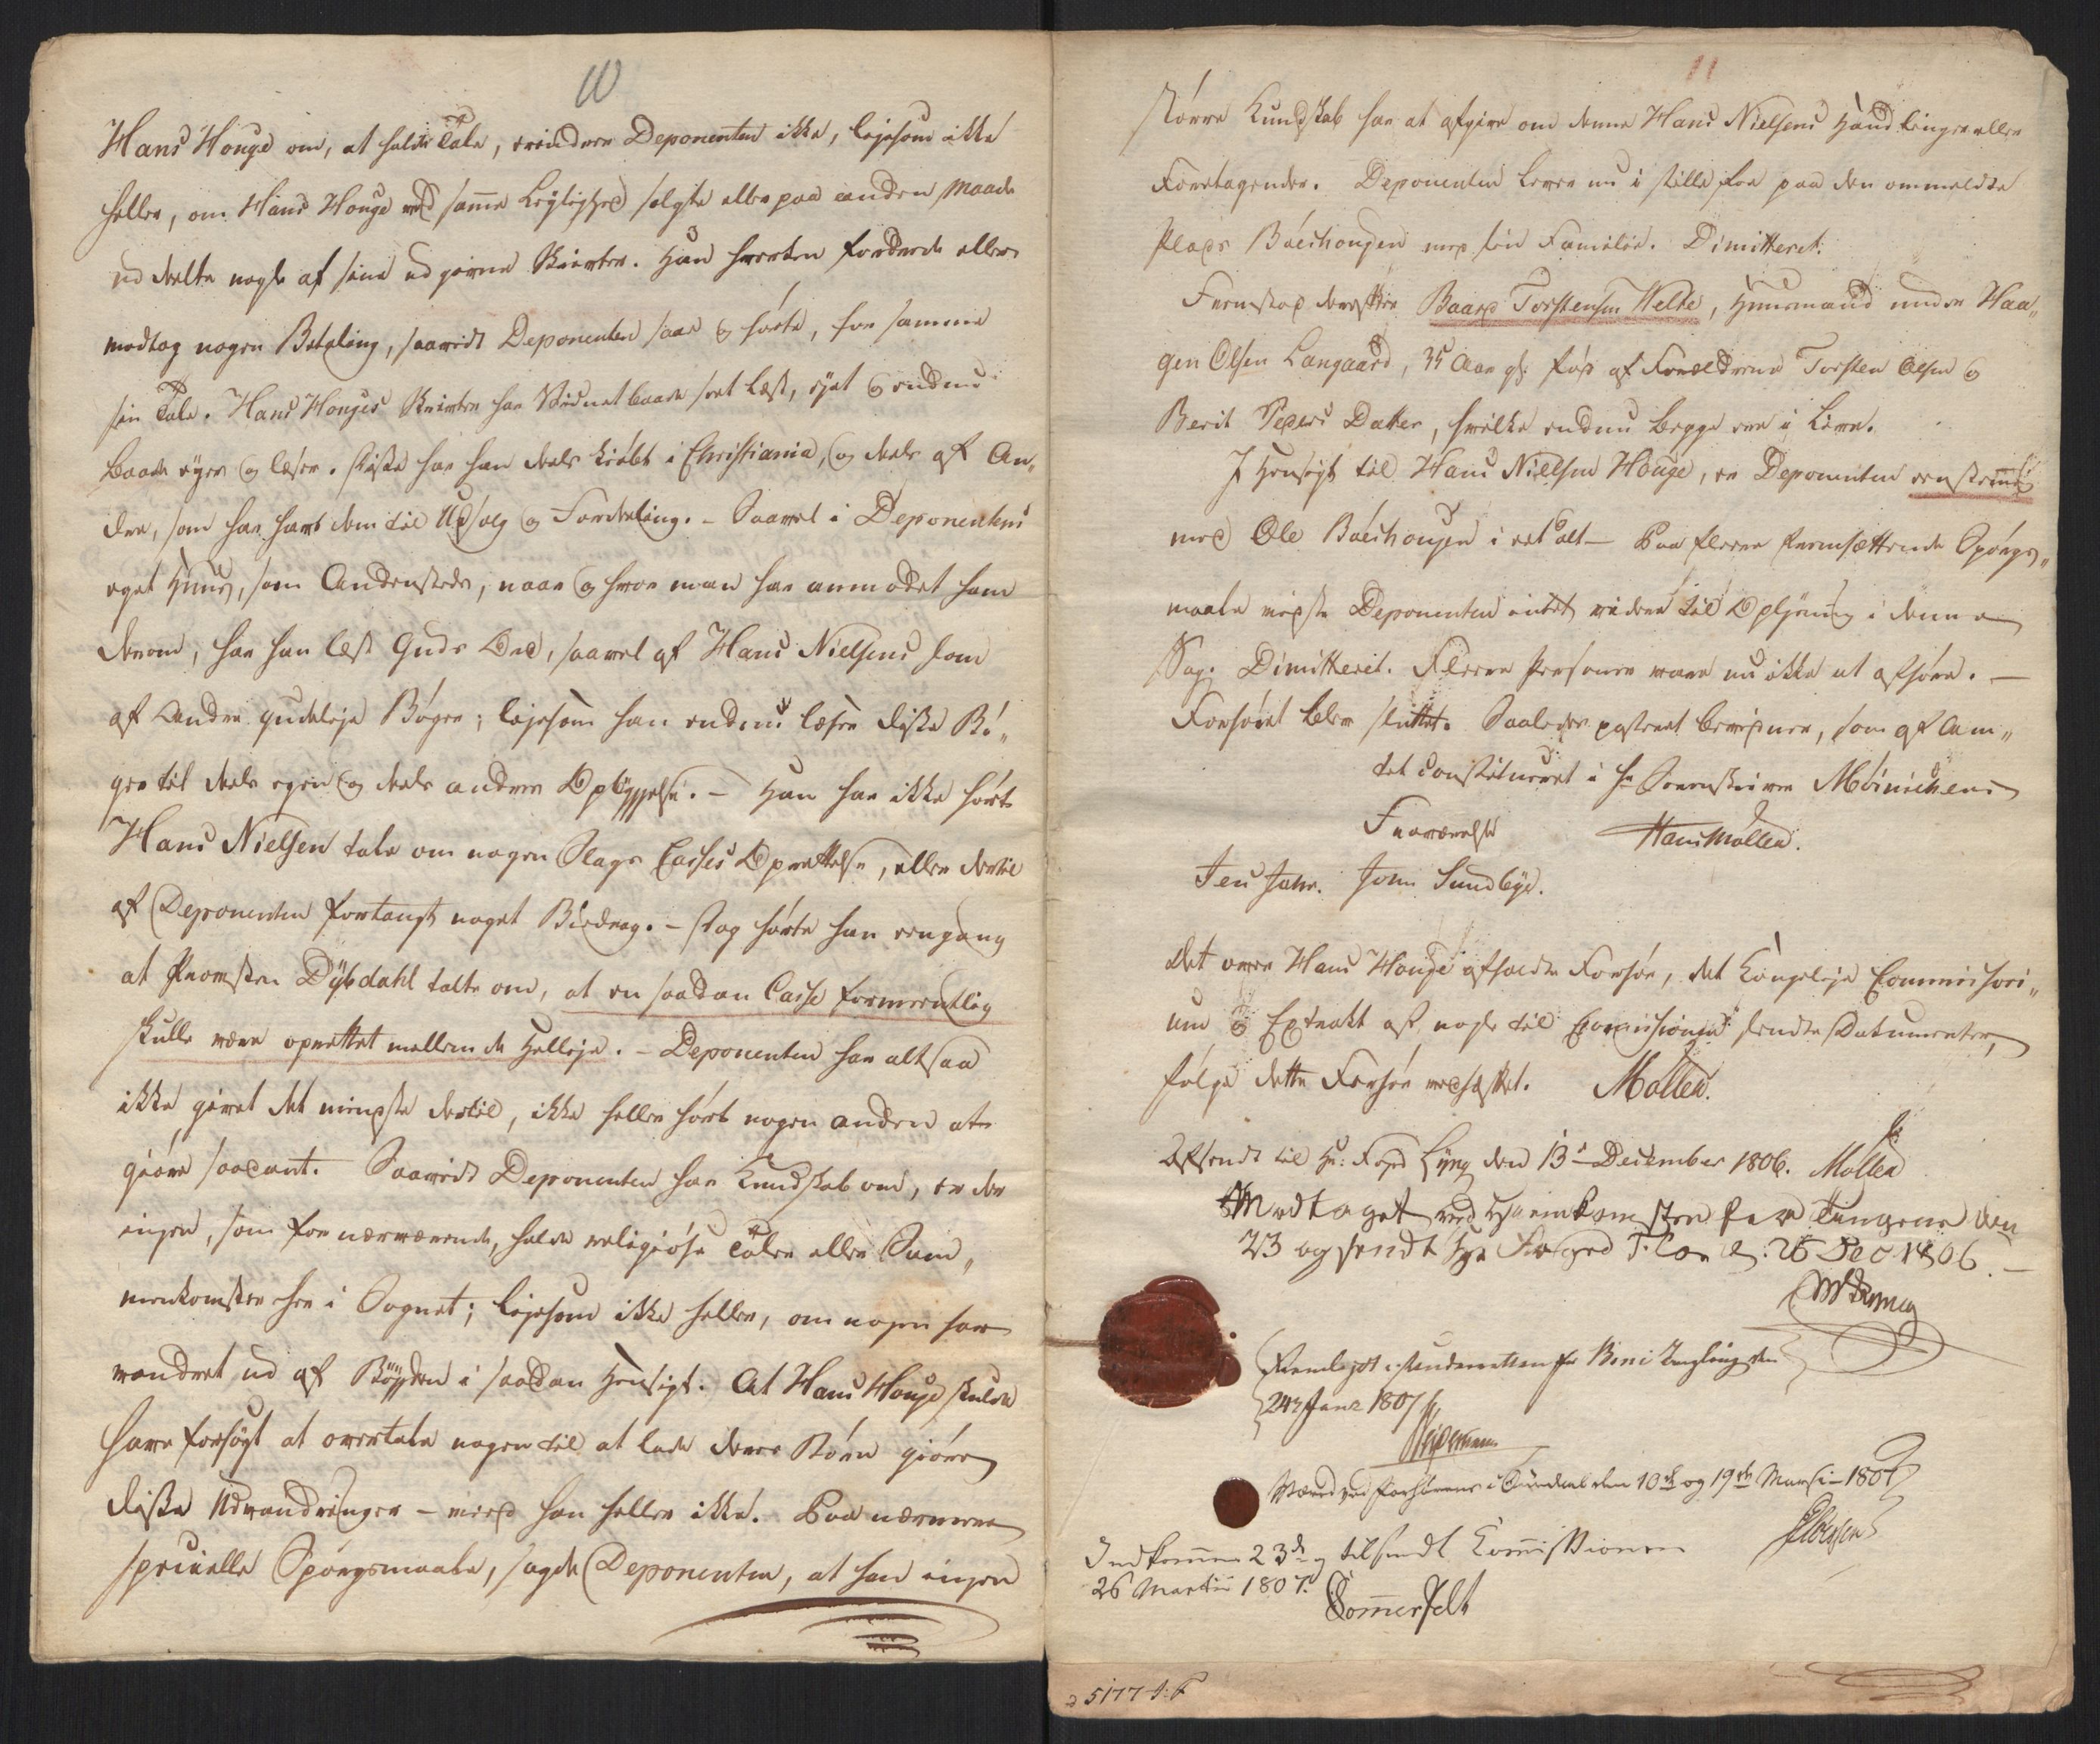 10
Hans Houge om, at holde Tale, erindrer Deponenten ikke, ligesom ikke
heller, om Hans Houge ved samme Leylighed solgte eller paa anden Maade
uddeelte nogle af sine udgivne Skrifter. Han hverken fordrede eller
modtog nogen Betaling, saavidt Deponenten saae og hørte, for samme
sin Tale. Hans Houges Skrifter har Vidnet baade seet læst, eyet og endnu
baade eyer og læser. Disse har han deels kiøbt i Christiania, og deels af An„
dre, som har havt dem til Udsalg og Fordeeling. - Saavel i Deponentens
eget Huus, som Andensteds, naar og hvor man har anmodet ham
derom, har han læst Guds Ord, saavel af Hans Nielsens som
af andre gudelige Bøger; ligesom han endnu læser disse Bø„
ger til deels egen og deels andres Opbyggelse. - Han har ikke hørt
Hans Nielsen tale om nogen Slags Casses Oprettelse, eller dertil
af Deponenten forlangt noget Bidrag. - Dog hørte han eengang
at Provsten Dybdahl talte om, at en saadan Casse formeentlig
skulle være oprettet mellem de Hellige. - Deponenten har altsaa
ikke givet det mindste dertil, ikke heller hørt nogen anden at
giøre saadant. Saavidt Deponenten har Kundskab om, er der
ingen, som for nærværende, holde religiøse Taler eller Sam„
menkomster her i Sognet; ligesom ikke heller, om nogen har
vandret ud af Bøyden i saadan Hensigt. At Hans Houge skulde
have forsøgt at overtale nogen til at lade deres Børn giøre
disse Udvandringer - vied han heller ikke. Paa nærmere
specielle Spørgsmaale, sagde Deponenten, at han ingen
11
større Kundskab har at afgive om denne Hans Nielsens Handlinger eller
Foretagender. Deponenten lever nu i stilled hee paa den ommeldte
Plads Böeshougen med sin Familie. Dimitteret.
Fremstod derefter Baard Torstensen Welte, Huusmand under Haa„
gen Olsen Langaard, 35 Aar gl. fød af Forældrene Torsten Olsen og
Berit Peders Datter, hvilke endnu begge ere i Live.
I Hensigt til Hans Nielsen Houge, er Deponenten eenstemmig
med Ole Böeshougen i eet Alt - Paa flere fremsættende Spørgs„
maale vidste Deponenten intet videre til Oplysning i denne
Sag. Dimitteret. Flere Personer vare nu ikke at afhøre. -
Forhøret blev sluttet. Saaledes passeret bevidner, som af Am„
tet constitueret i Hr Sorenskriver Möinichens
Fraværelse Hans Møller.
Jens Jahr. John Sundbye.
Det over Hans Houge afholdte Forhør, det Kongelige Commissori„
um og Extrakt af nogle til Commissionen sendte Dokumenter,
følge dette Forhør vedhæftet. Møller.
Afsendt til Hr. Foged Lyng den 13de December 1806. Møller
Modtaget ved Hiemkomsten fra Tingene den
23 og sendt Hr Foged d. 26 Dec 1806. -
Lyng
Fremlagt i Underretten
24 Janr 1807
den 10de og 19de Marti 1807
Indkommen 23de og tilsendt Commissionen
26 Martii 1807.
Sommerfelt
5177